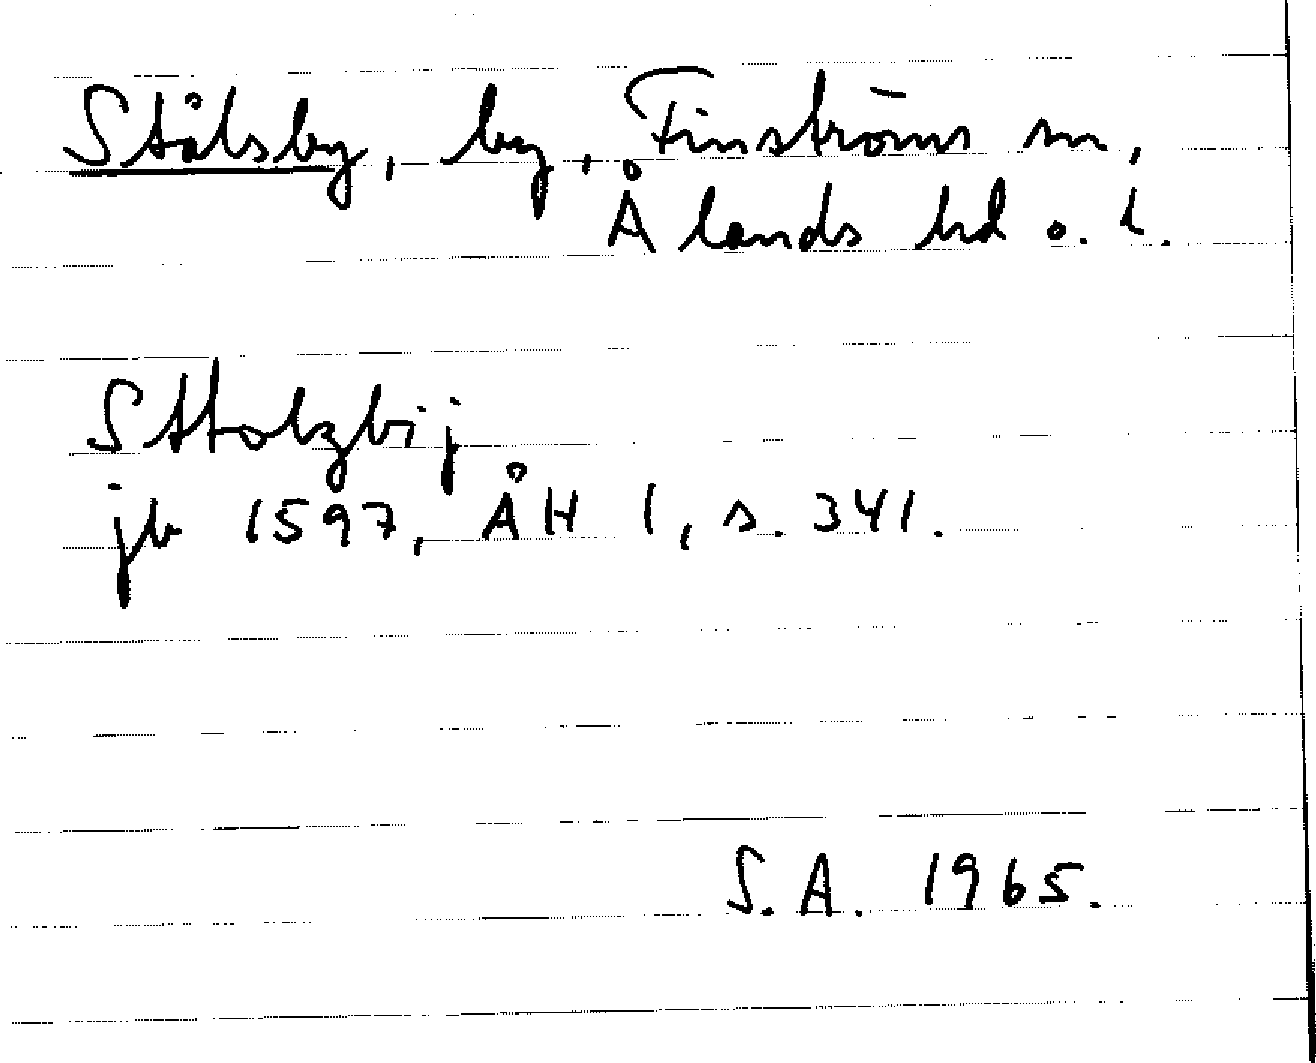 Stålsby, by, Finströms sn,
Ålands hd o. l.
Sttolzbij
jb 1597, ÅH 1, s. 341.
S.A. 1965.